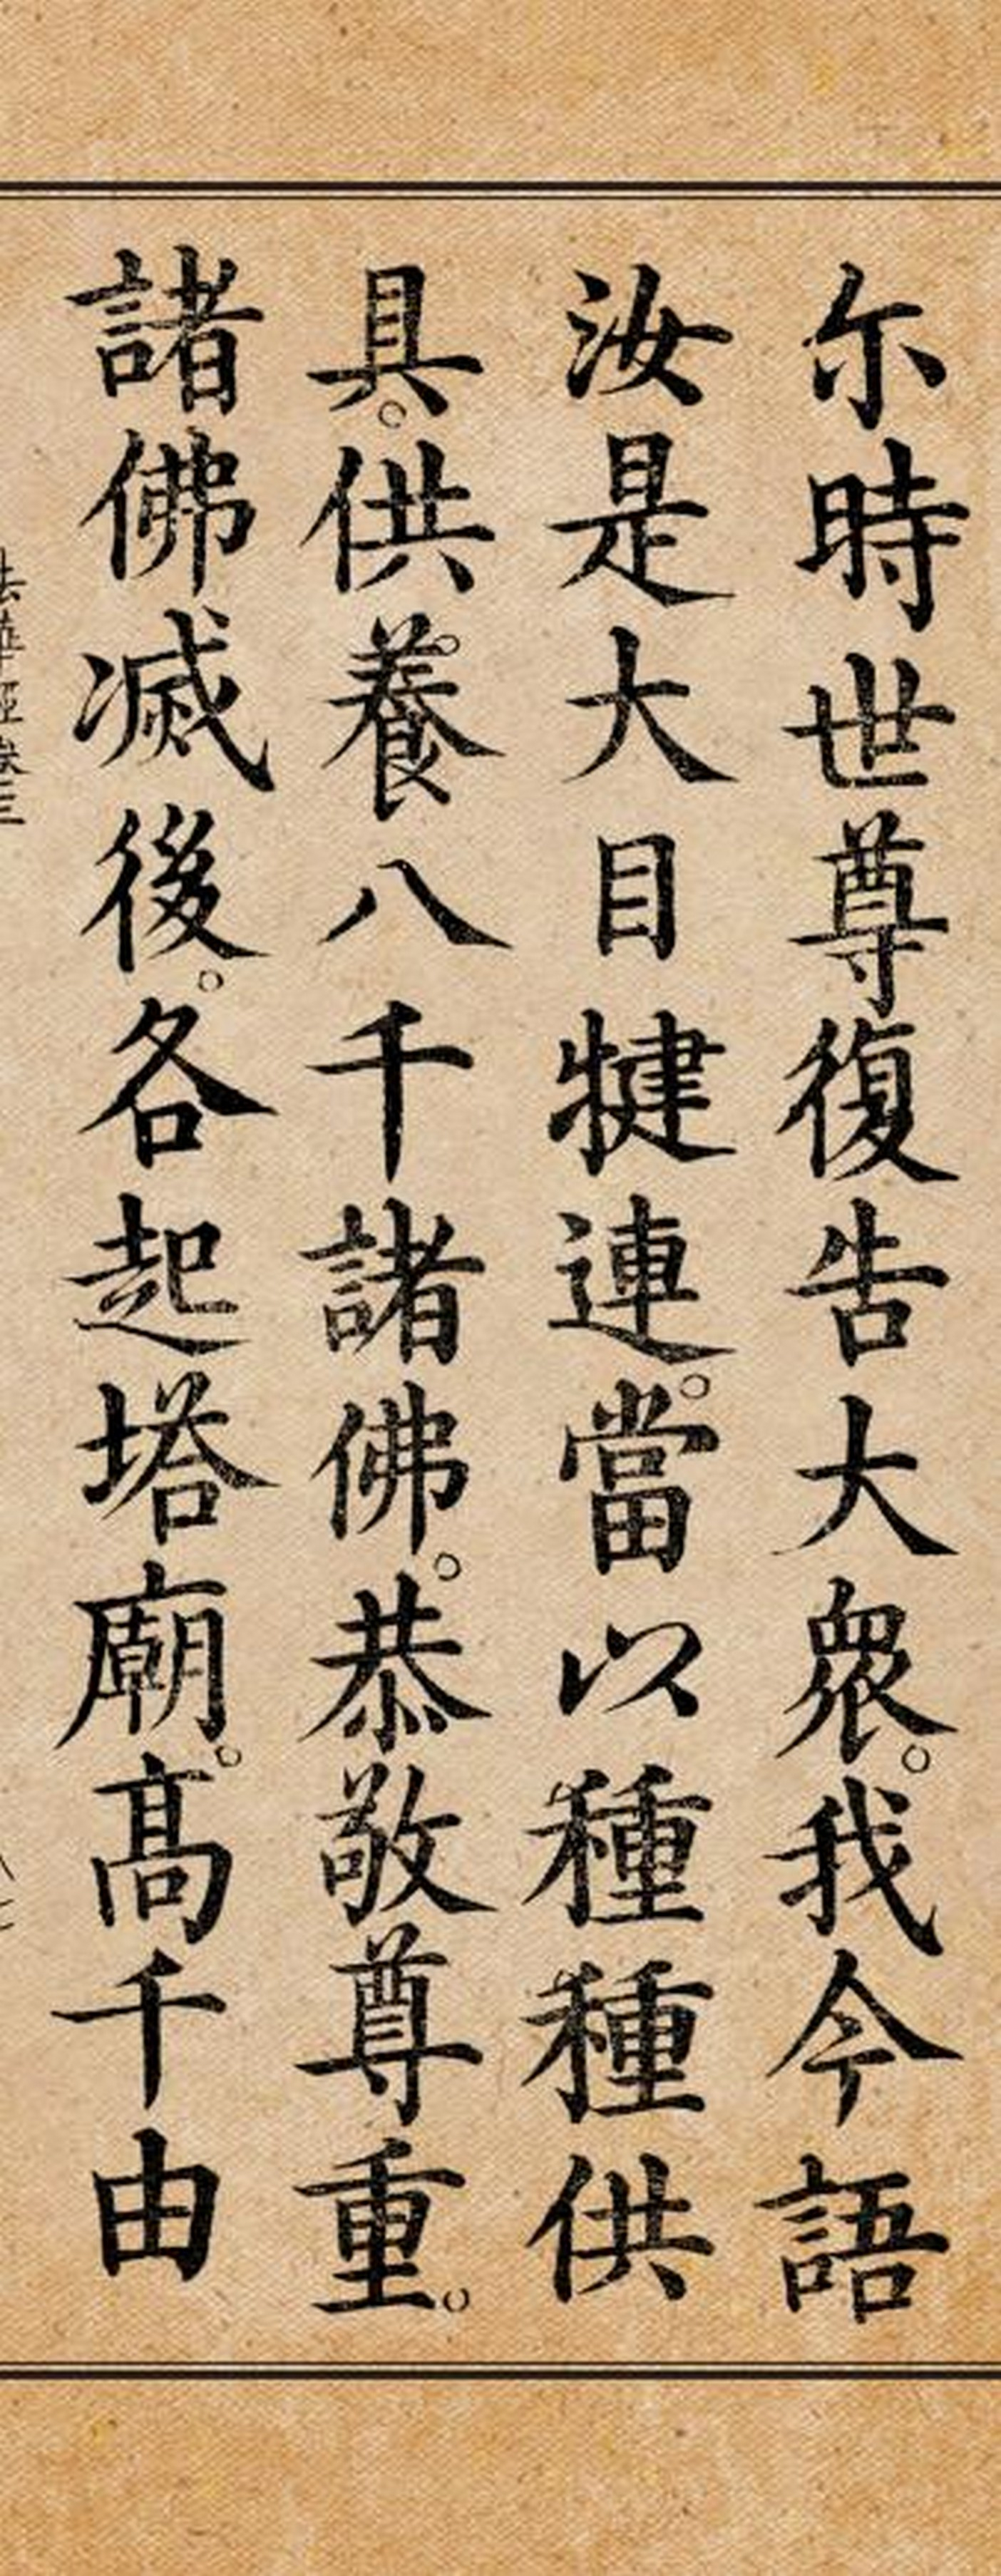 尔時世尊復告大衆。我今語
汝是大目犍連。當以種種供
具。供養八千諸佛。恭敬尊重。
諸佛滅後。各起塔廟。高千由
法華經卷三